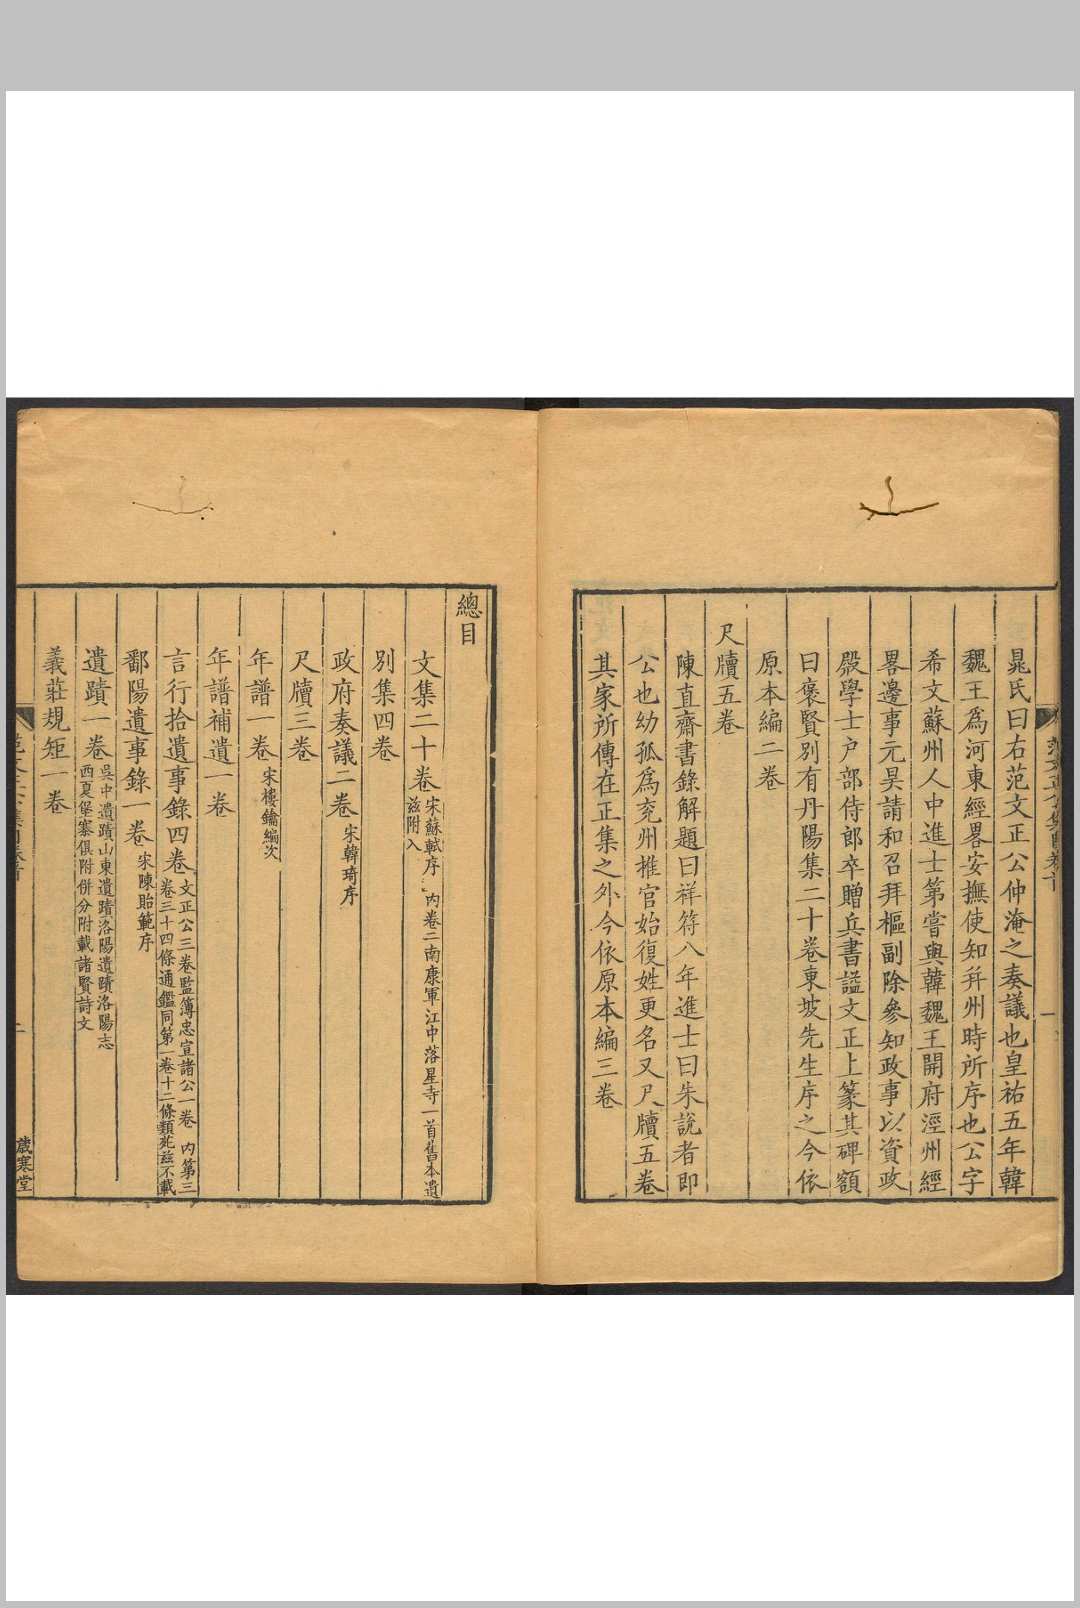 晁氏曰右范文正公仲淹之奏議也皇祐五年韓
魏王爲河東經畧安撫使知幷州時所序也公字
希文蘇州人中進士第嘗與韓魏王開府涇州經
畧邊事元昊請和召拜樞副除參知政事以資政
殿學士戶部侍郎卒贈兵書謚文正上篆其碑額
曰褒賢別有丹陽集二十卷東坡先生序之今依
原本編二卷
尺牘五卷
陳直齋書錄解題曰祥符八年進士曰朱說者卽
公也幼孤爲兗州推官始復姓更名又尺牘五卷
其家所傳在正集之外今依原本編三卷
總目
文集二十卷 宋蘇軾序 內卷二南康軍江中落星寺一首舊本遺
茲附入
別集四卷
政府奏議二卷 宋韓琦序
尺牘三卷
年譜一卷 宋樓鑰編次
年譜補遺一卷
言行拾遺事錄四卷 文正公三卷監簿忠宣諸公一卷 內第三
卷三十四條通鑑同第一卷十二條類此茲不載
鄱陽遺事錄一卷 宋陳貽範序
遺蹟一卷 吳中遺蹟山東遺蹟洛陽遺蹟洛陽志
西夏堡寨俱附併分附載諸賢詩文
義莊規矩一卷
二
歲寒堂